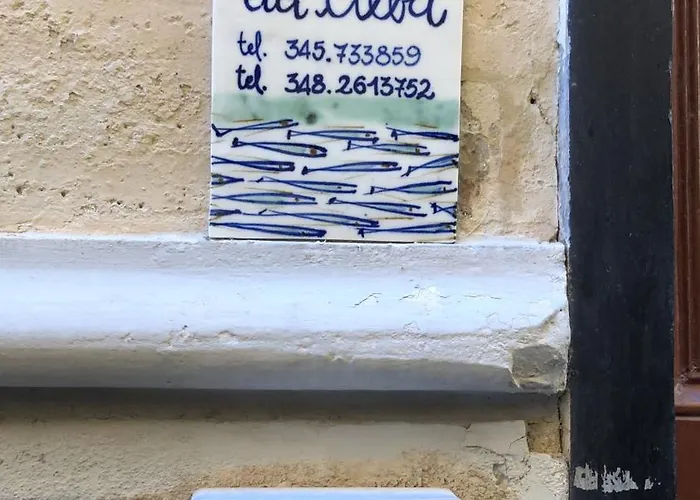 tel. 345.733859
tel. 348.2613752